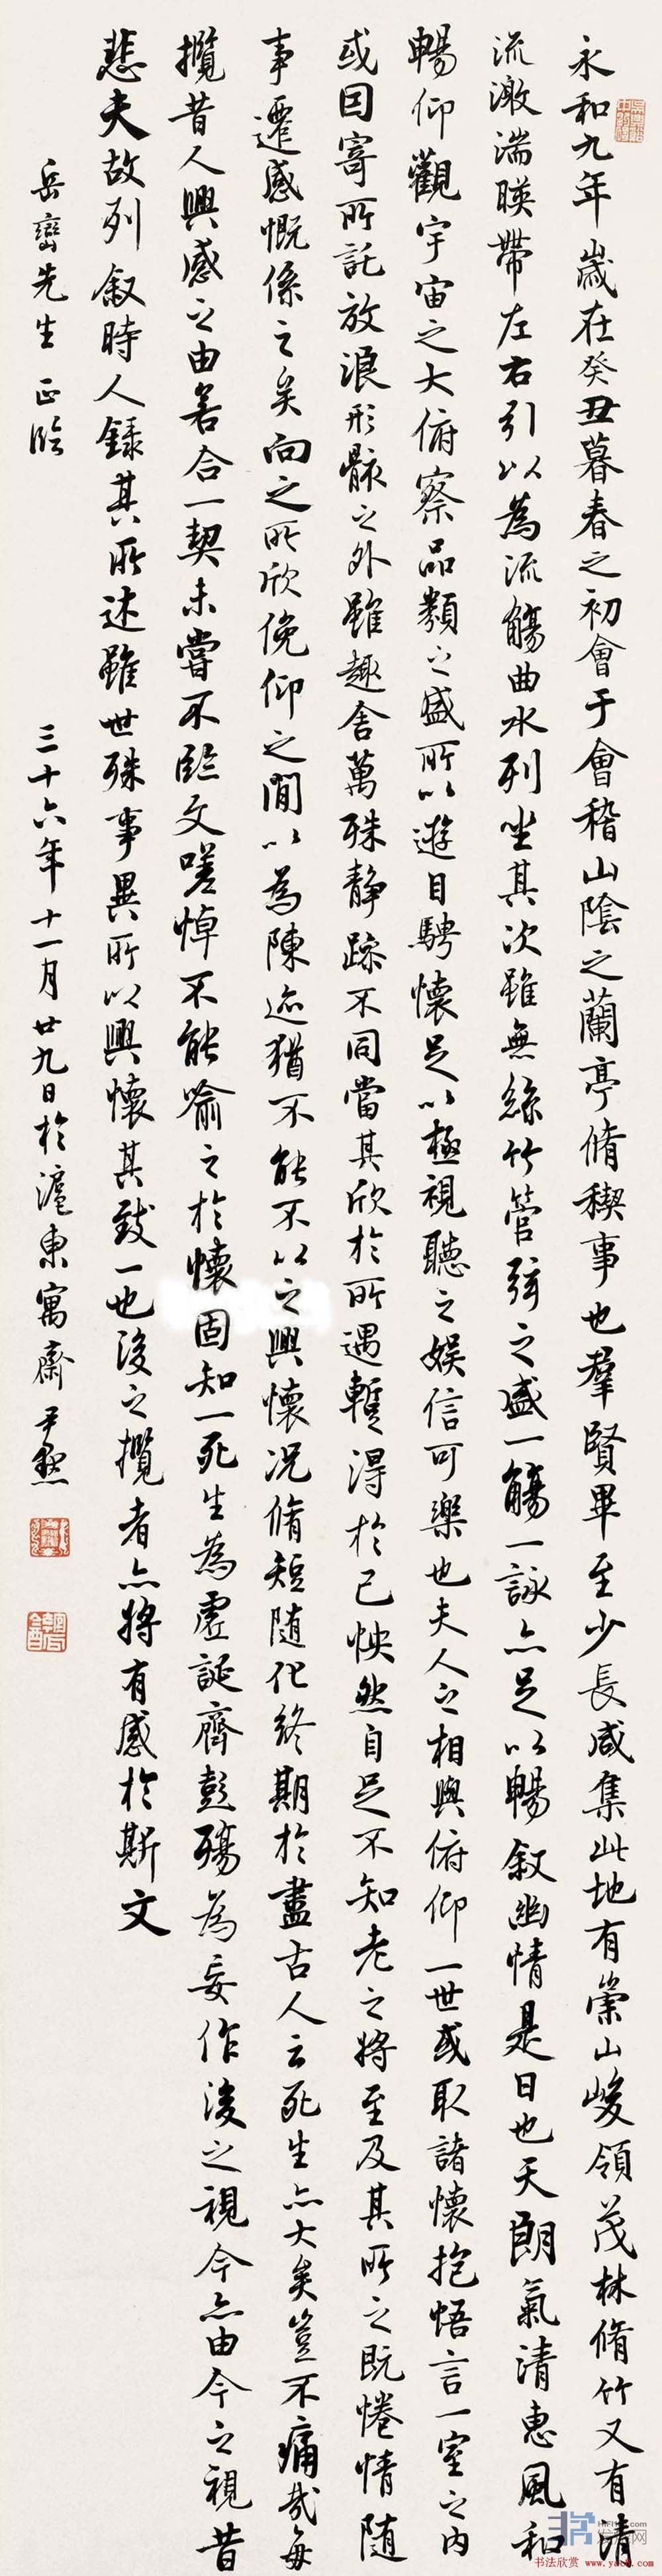 永和九年歲在癸丑暮春之初會于會稽山陰之蘭亭脩稧事也羣賢畢至少長咸集此地有崇山峻領茂林脩竹又有清
流激湍暎帶左右引以為流觴曲水列坐其次雖無絲竹管弦之盛一觴一詠亦足以暢叙幽情是日也天朗氣清惠風和
暢仰觀宇宙之大俯察品類之盛所以遊目騁懷足以極視聽之娛信可樂也夫人之相與俯仰一世或取諸懷抱悟言一室之內
或因寄所託放浪形骸之外雖趣舍萬殊静躁不同當其欣於所遇蹔得於己怏然自足不知老之將至及其所之既惓情隨
事遷感慨係之矣向之所欣俛仰之間以為陳迹猶不能不以之興懷況脩短隨化終期於盡古人云死生亦大矣豈不痛哉每
攬昔人興感之由若合一契未嘗不臨文嗟悼不能喻之於懷固知一死生為虛誕齊彭殤為妄作後之視今亦由今之視昔
悲夫故列叙時人錄其所述雖世殊事異所以興懷其致一也後之攬者亦將有感於斯文
岳巒先生正臨 三十六年十一月廿九日於滬東寓齋 尹默
书法欣赏 www.yac8.com